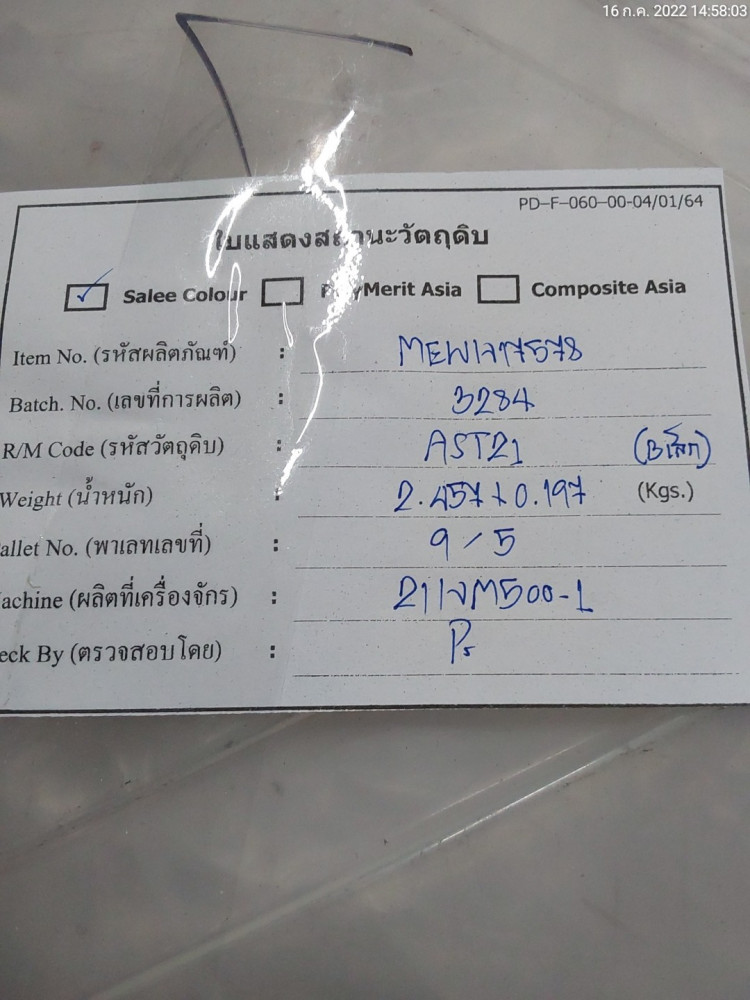 16 ก.ค. 2022 14:58:03
PD-F-060-00-04/01/64
ใบแสดงสถานะวัตถุดิบ
Salee Colour PolyMerit Asia Composite Asia
Item No. (รหัสผลิตภัณฑ์) :
Batch. No. (เลขที่การผลิต) : 3284
R/M Code (รหัสวัตถุดิบ) : AST21
Weight (น้ำหนัก) : 2.457+0.197 (Kgs.)
allet No. (พาเลทเลขที่) : 9/5
achine (ผลิตที่เครื่องจักร) :
eck By (ตรวจสอบโดย) :